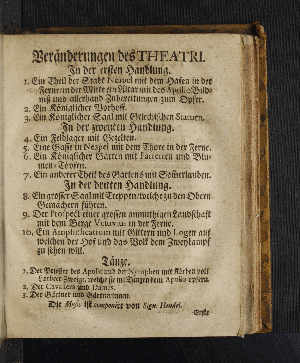 Veränderungen des THEATRI.
In der ersten Handlung.
1. Ein Theil der Stadt Neapel mit dem Hafen in der
Ferne; in der Mitte ein Altar mit des Apollo Bild-
nuß und allerhand Zubereitungen zum Opfer.
2. Ein Königlicher Vorhoff.
3. Ein Königlicher Saal mit Griechischen Statuen.
In der zweyten Handlung.
4. Ein Feldlager mit Gezelten.
5. Eine Gasse in Neapel mit dem Thore in der Ferne.
6. Ein Königlicher Garten mit Parterren und Blu-
men-Töpfen.
7. Ein anderer Theil des Gartens mit
In der dritten Handlung.
8. Ein grosser Saal mit Treppen, welche zu den Obern
Gemächern führen.
9. Der Prospect einer grossen anmuthigen Landschaft
mit dem Berge Vesuvio in der Ferne.
10. Ein Amphitheatrum mit Gittern und Logen auf
welchen der Hof und das Volk dem Zweykampf
zu sehen will.
Tänze.
1. Der Priester des Apollo und der Nymphen mit Körben voll
Lorbeer-Zweige, welche sie im Tanzen dem Apollo opfern.
2. Der Cavaliers und Dames.
3. Der Gärtner und Gärtnerinnen.
Die Music ist componirt von Sign. Hendel.
Erste